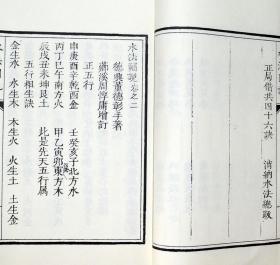 正局借共四十六訣　消納水法總斷
水法圖說卷之二
德興董德彰手著
瀛溪周惇庸增訂
正五行
申庚酉辛乾酉金　壬癸亥子北方水
丙丁巳午南方火　甲乙寅卯東方木
辰戌丑未坤艮土　此是先天五行屬
五行相生訣
金生水　水生木　木生火　火生土　土生金